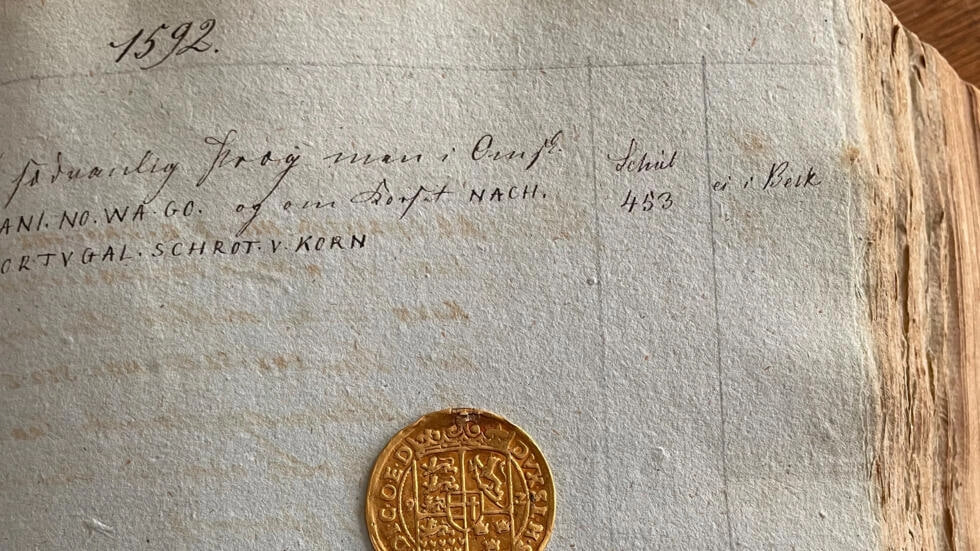 1592.
sædvanlig Præg men i Omsk:
ANI. NO. WA. GO. og om Korset NACH.
ORTVGAL. SCHROT. V. KORN
Schul
453
ei i Berk
G.O.E.D DVX.SLE
9 2